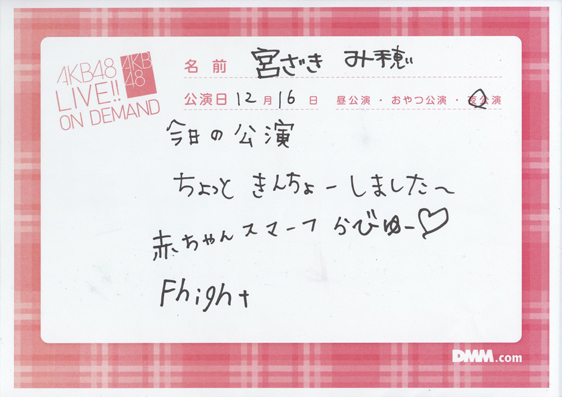 AKB48
LIVE!!
ON DEMAND
AKB
48
名前 宮ざき み穂
公演日 12月16日 昼公演・おやつ公演・夜公演
今日の公演
ちょっと きんちょーしました〜
赤ちゃんスマーフ らびゅー♡
Fhight
DMM.com